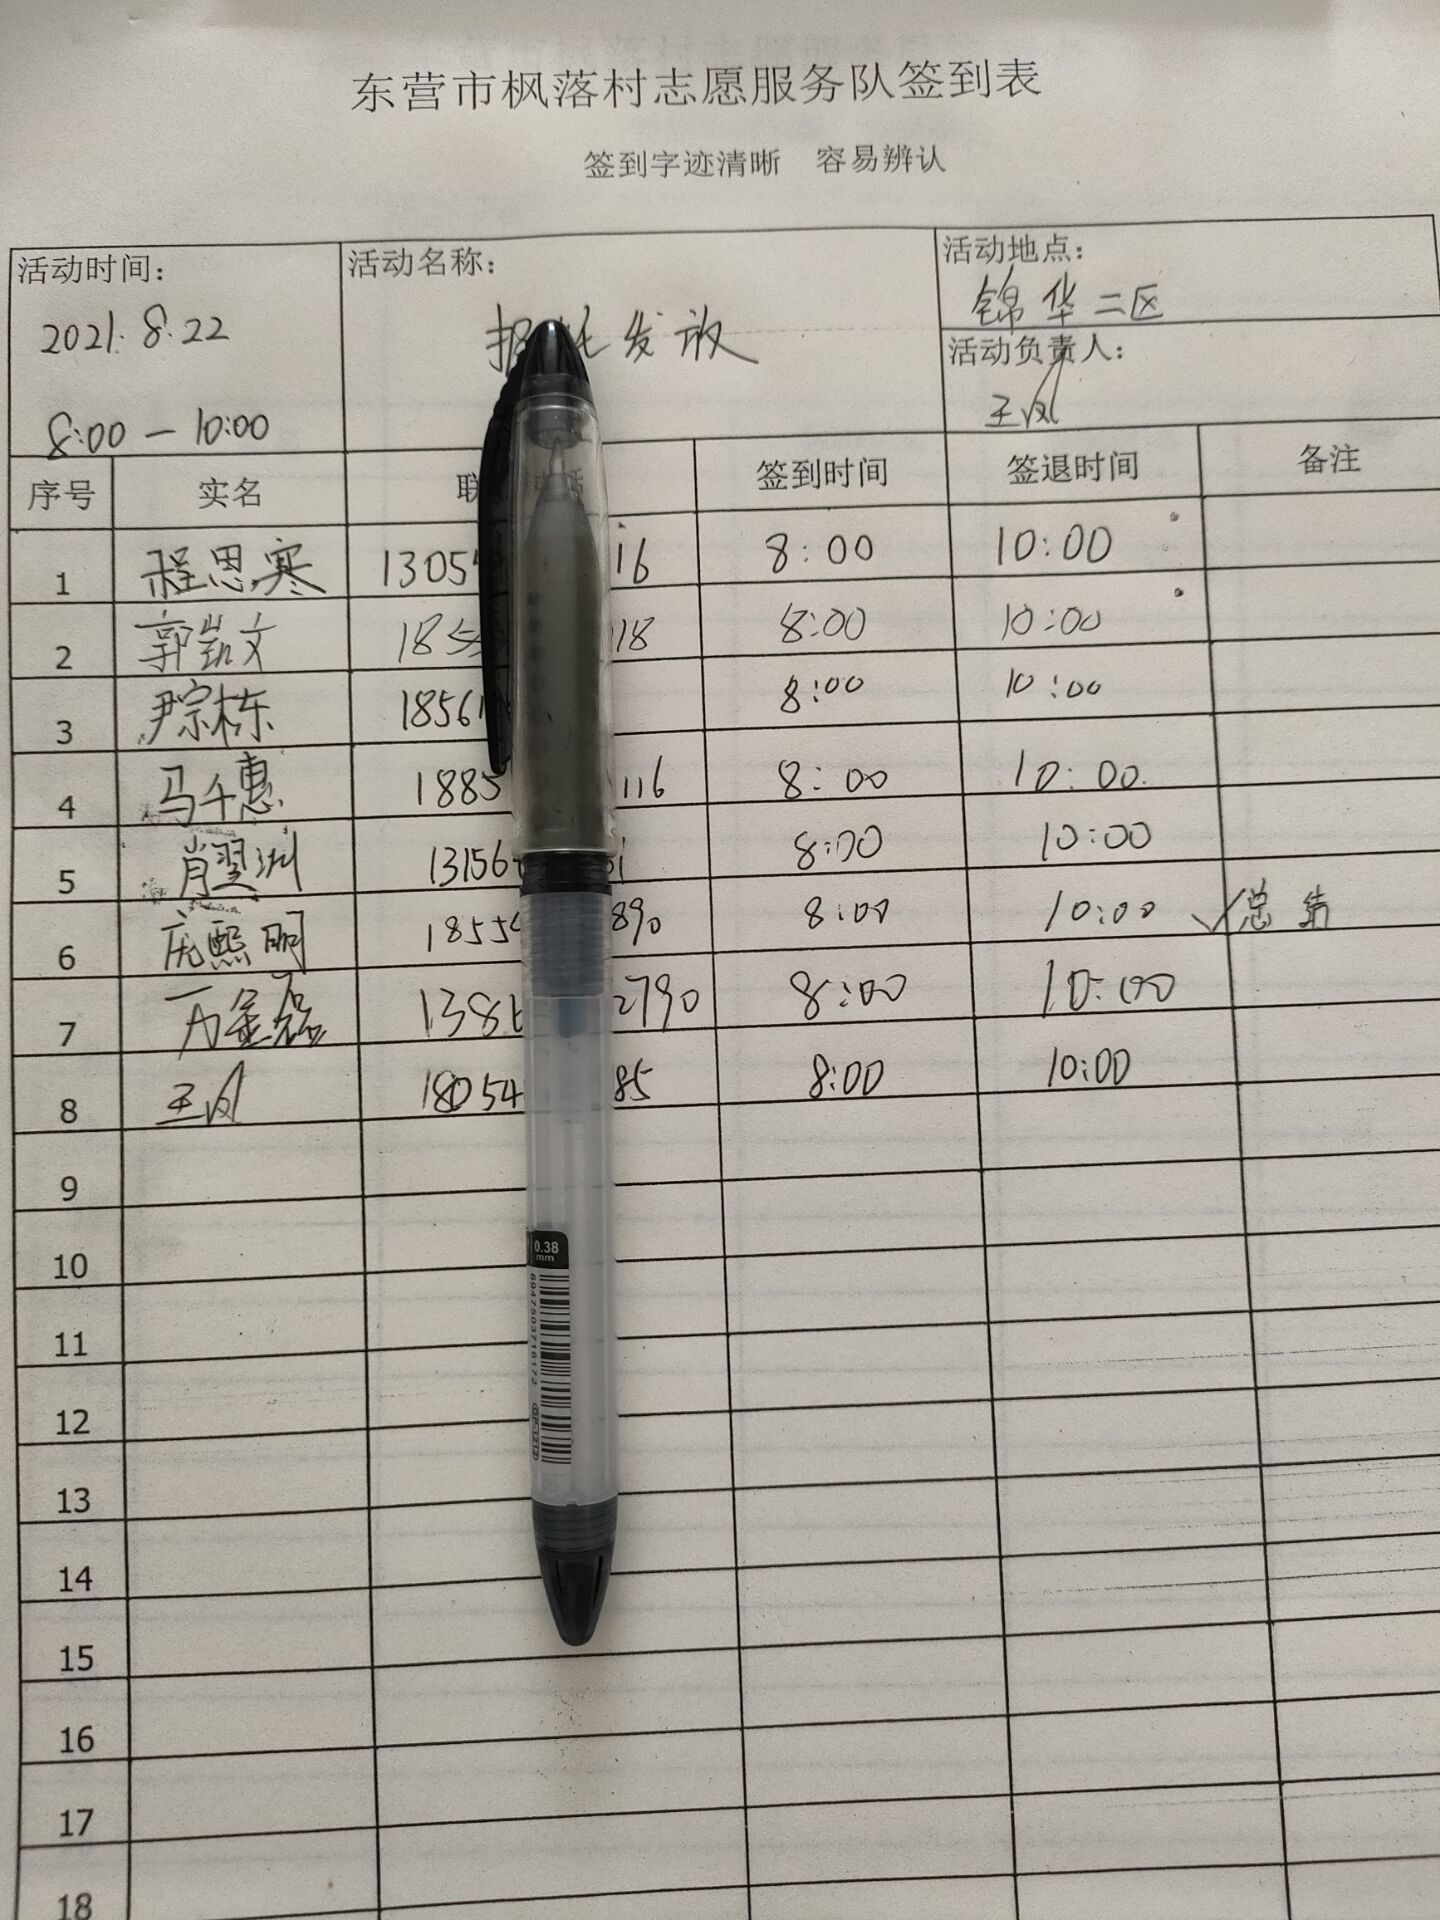 东营市枫落村志愿服务队签到表
签到字迹清晰 容易辨认
活动时间：
2021.8.22
8:00 — 10:00
活动名称：
发放
活动地点：
锦华二区
活动负责人：
王凤
序号 实名 联 电话 签到时间 签退时间 备注
1 程思寒 1305 16 8:00 10:00
2 郭凯文 185 118 8:00 10:00
3 尹宗栋 1856 8:00 10:00
4 马千惠 1885 116 8:00 10:00
5 肖翌洲 13156 8:00 10:00
6 庞熙明 1855 890 8:00 10:00 ✓总结
7 万金磊 138 2790 8:00 10:00
8 王凤 18054 85 8:00 10:00
9
10
11
12
13
14
15
16
17
18
0.38
mm
6947503716172
GP-1212